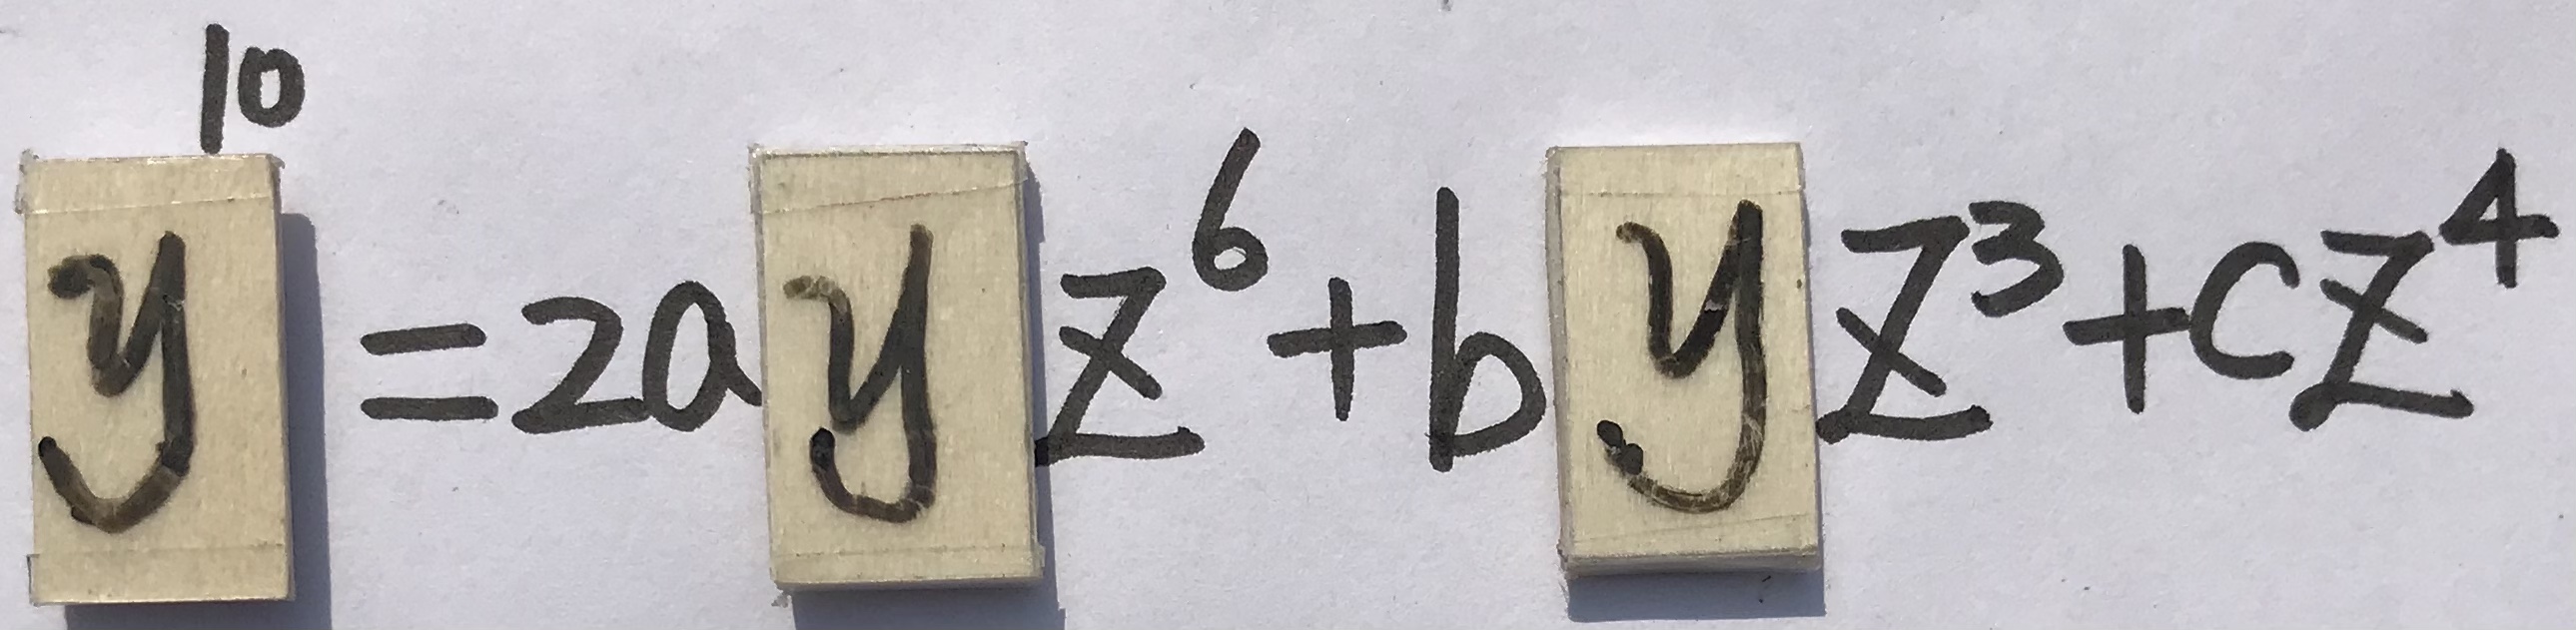 y¹⁰=2ayz⁶+byz³+cz⁴